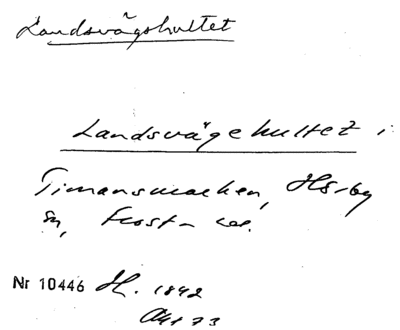 Landsvägshultet
Landsvägehultet i
Timansmarken, Hörby
sn, Frosta
Nr 10446 H. 1842
Akt 73